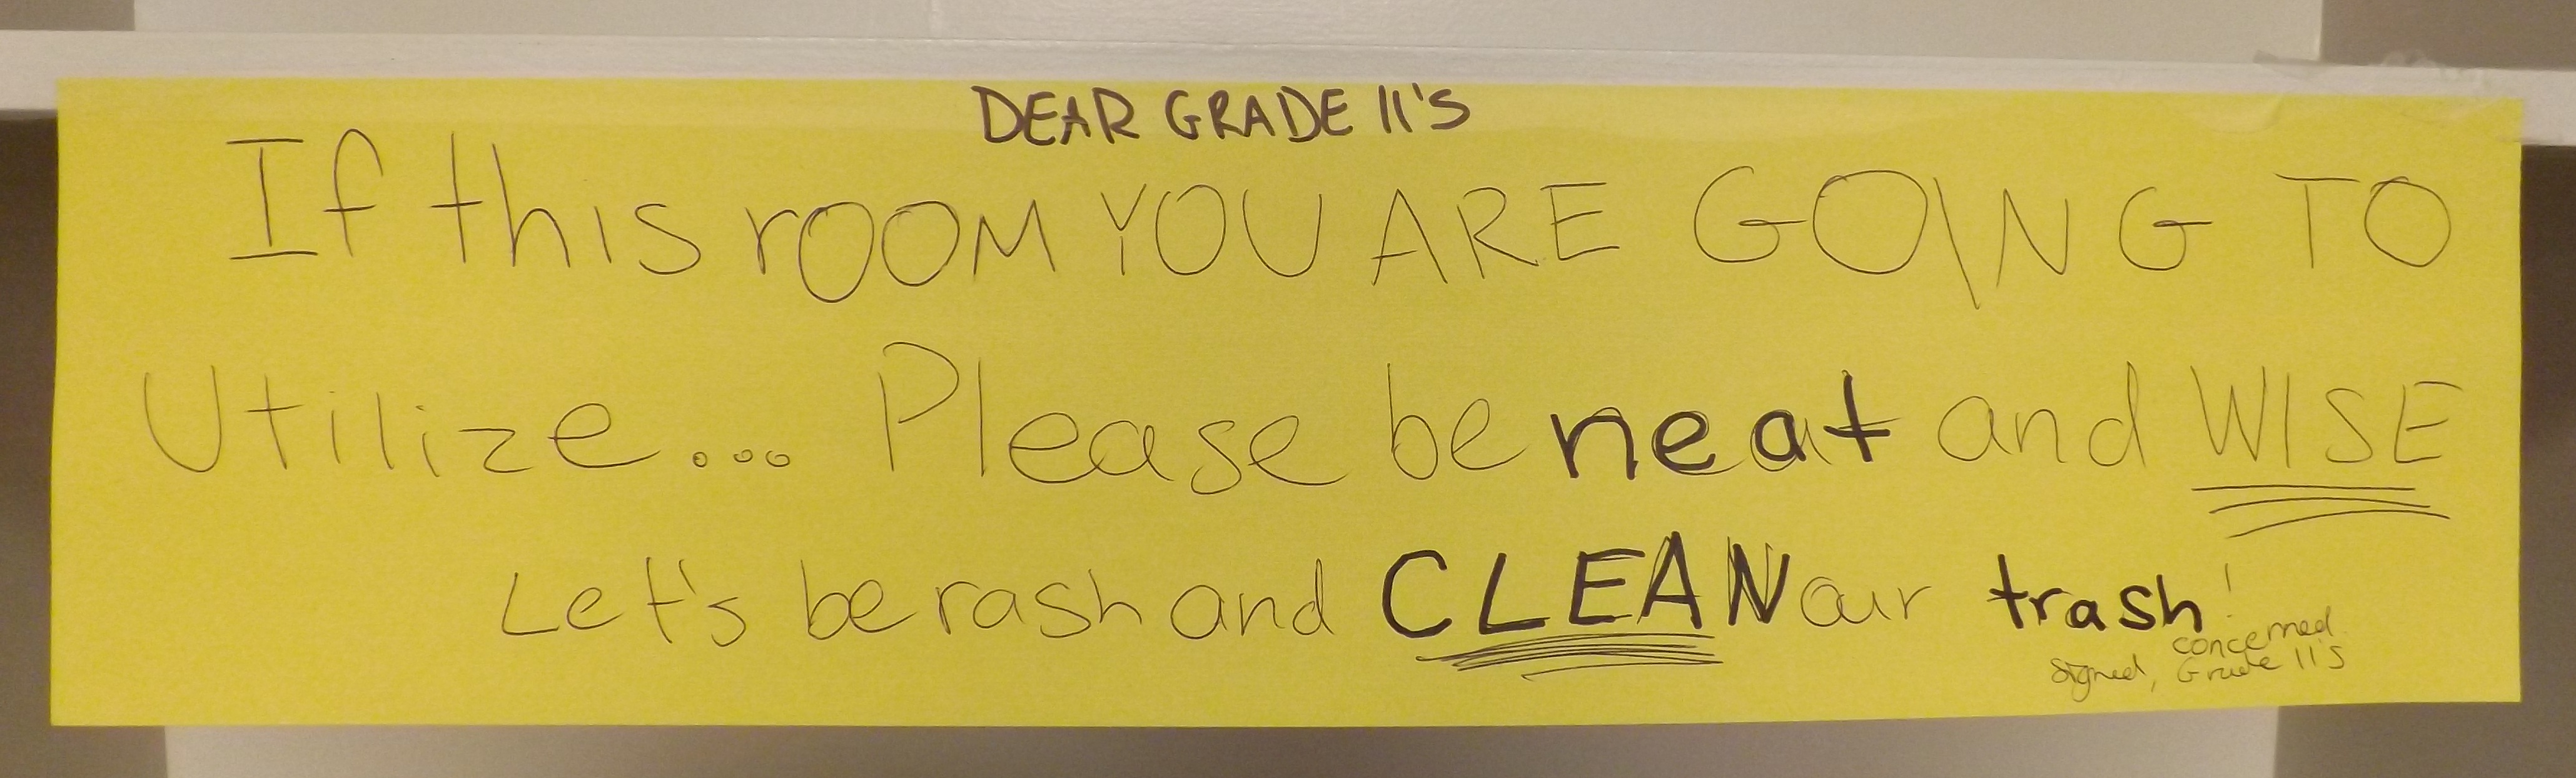 DEAR GRADE 11'S
If this rOOM YOU ARE GOING TO
Utilize... Please be neat and WISE
Let's be rash and CLEAN our trash!
signed, concerned
Grade 11's